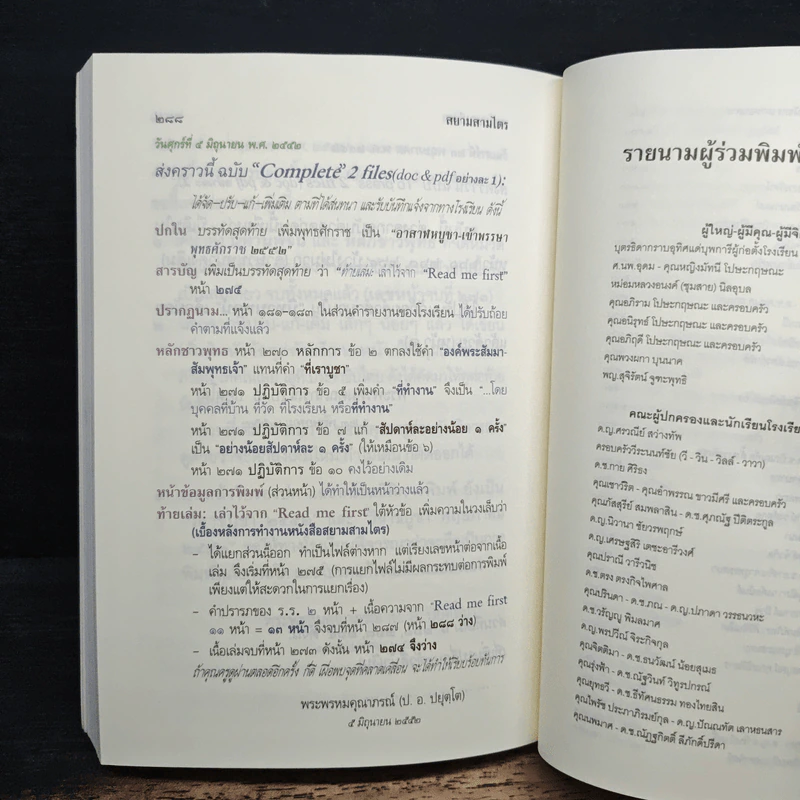 ๒๘๘ สยามสามไตร
วันศุกร์ที่ ๕ มิถุนายน พ.ศ. ๒๕๕๒
ส่งคราวนี้ ฉบับ “Complete” 2 files(doc & pdf อย่างละ 1):
ได้จัด-ปรับ-แก้-เพิ่มเติม ตามที่ได้สนทนา และรับบันทึกแจ้งจากทางโรงเรียน ดังนี้
ปกใน บรรทัดสุดท้าย เพิ่มพุทธศักราช เป็น “อาสาฬหบูชา-เข้าพรรษา
พุทธศักราช ๒๕๕๒”
สารบัญ เพิ่มเป็นบรรทัดสุดท้าย ว่า “ท้ายเล่ม: เล่าไว้จาก “Read me first”
หน้า ๒๗๕
ปรากฏนาม... หน้า ๑๘๑-๑๘๓ ในส่วนคำรายงานของโรงเรียน ได้ปรับถ้อย
คำตามที่แจ้งแล้ว
หลักชาวพุทธ หน้า ๒๗๐ หลักการ ข้อ ๒ ตกลงใช้คำ “องค์พระสัมมา-
สัมพุทธเจ้า” แทนที่คำ “ที่เราบูชา”
หน้า ๒๗๑ ปฏิบัติการ ข้อ ๕ เพิ่มคำ “ที่ทำงาน” จึงเป็น “...โดย
บุคคลที่บ้าน ที่วัด ที่โรงเรียน หรือที่ทำงาน”
หน้า ๒๗๑ ปฏิบัติการ ข้อ ๗ แก้ “สัปดาห์ละอย่างน้อย ๑ ครั้ง”
เป็น “อย่างน้อยสัปดาห์ละ ๑ ครั้ง” (ให้เหมือนข้อ ๖)
หน้า ๒๗๑ ปฏิบัติการ ข้อ ๑๐ คงไว้อย่างเดิม
หน้าข้อมูลการพิมพ์ (ส่วนหน้า) ได้ทำให้เป็นหน้าว่างแล้ว
ท้ายเล่ม: เล่าไว้จาก “Read me first” ใต้หัวข้อ เพิ่มความในวงเล็บว่า
(เบื้องหลังการทำงานหนังสือสยามสามไตร)
– ได้แยกส่วนนี้ออก ทำเป็นไฟล์ต่างหาก แต่เรียงเลขหน้าต่อจากเนื้อ
เล่ม จึงเริ่มที่หน้า ๒๗๕ (การแยกไฟล์ไม่มีผลกระทบต่อการพิมพ์
เพียงแต่ให้สะดวกในการแยกเรื่อง)
– คำปรารภของ ร.ร. ๒ หน้า + เนื้อความจาก “Read me first
๑๑ หน้า = ๑๓ หน้า จึงจบที่หน้า ๒๘๗ (หน้า ๒๘๘ ว่าง)
– เนื้อเล่มจบที่หน้า ๒๗๓ ดังนั้น หน้า ๒๗๔ จึงว่าง
ถ้าคุณครูดูผ่านตลอดอีกครั้ง ก็ดี เผื่อพบจุดที่คลาดเคลื่อน จะได้ทำให้เรียบร้อยทันการ
พระพรหมคุณาภรณ์ (ป. อ. ปยุตฺโต)
๕ มิถุนายน ๒๕๕๒
รายนามผู้ร่วมพิมพ์
ผู้ใหญ่-ผู้มีคุณ-ผู้มีจิ
บุตรธิดากราบอุทิศแด่บุพการีผู้ก่อตั้งโรงเรียน
ศ.นพ.อุดม - คุณหญิงมัทนี โปษะกฤษณะ
หม่อมหลวงอนงค์ (ชุมสาย) นิลอุบล
คุณอภิราม โปษะกฤษณะ และครอบครัว
คุณอนิรุทธ์ โปษะกฤษณะ และครอบครัว
คุณอภิฤดี โปษะกฤษณะ และครอบครัว
คุณพวงผกา บุนนาค
พญ.สุจิรัตน์ ฐูฑะพุทธิ
คณะผู้ปกครองและนักเรียนโรงเรีย
ด.ญ.ศรวณีย์ สว่างทัพ
ครอบครัววีระนนท์ชัย (วี - วิน - วิลล์ - วาวา)
ด.ช.กาย ศิริธง
คุณเชาวริต - คุณอำพรรณ ชาวมีศรี และครอบครัว
คุณภัสสุรีย์ สมพลาสิน - ด.ช.ศุภณัฐ ปีติตระกูล
ด.ญ.นิวานา ชัยวรพฤกษ์
ด.ญ.เศรษฐสิริ เตชะอารีวงศ์
คุณปราณี วารีวนิช
ด.ช.ตรง ตรงกิจไพศาล
คุณปรินดา - ด.ช.ภณ - ด.ญ.ปภาดา วรรธนวหะ
ด.ช.วรัญญู พิมลมาศ
ด.ญ.พรปวีณ์ จิระกิจกุล
คุณจิตติมา - ด.ช.ธนวัฒน์ น้อยสุเมธ
คุณรุ่งฟ้า - ด.ช.ณัฐวินท์ วิทูรปกรณ์
คุณยุทธวี - ด.ช.ธีทัศนธรรม ทองไทยสิน
คุณไพรัช ประภาภิรมย์กุล - ด.ญ.ปัณณทัต เลาหธนสาร
คุณนพมาศ - ด.ช.ณัฏฐกิตติ์ ลีภักดิ์ปรีดา